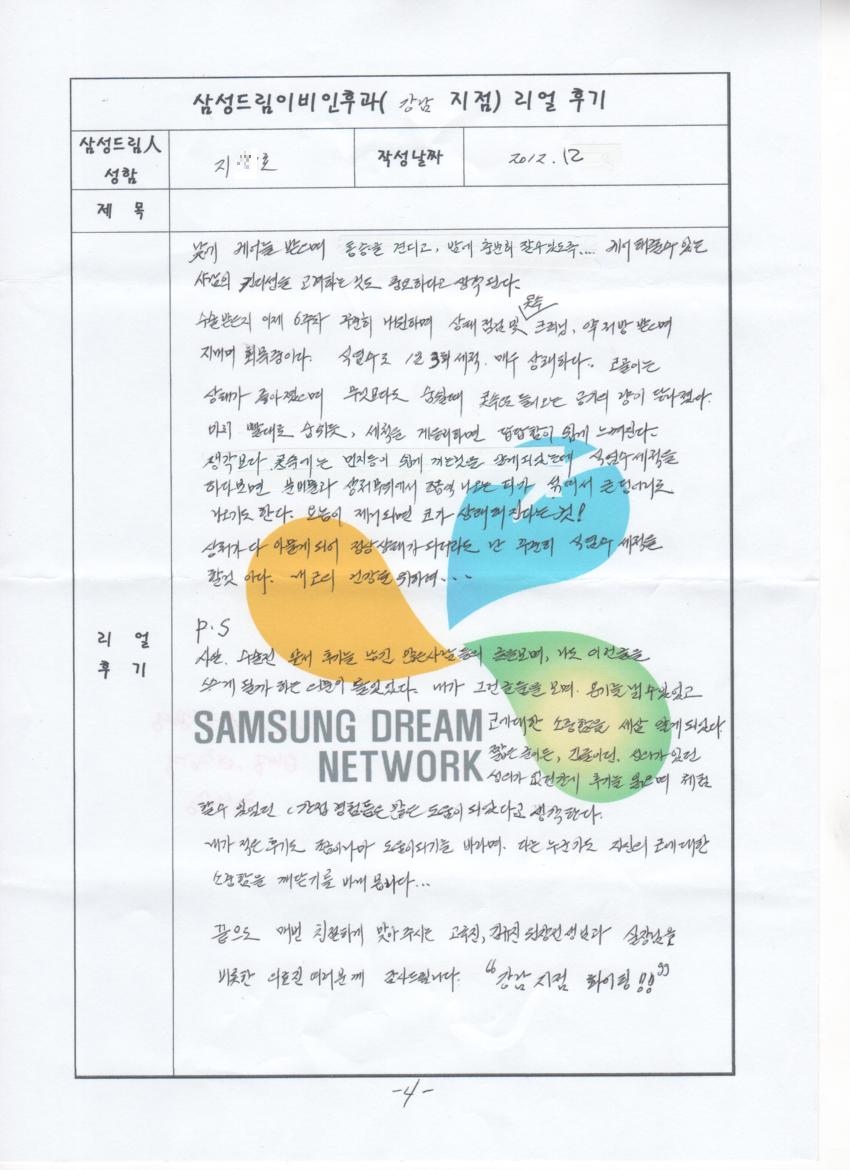 삼성드림이비인후과( 강남 지점) 리얼 후기
삼성드림人
성함
지 호
작성날짜
2012. 12
제 목
받으며 통증을 견디고, 밤에 충분히 잘수있도록....
고려하는것도 중요하다고 생각된다.
콧속
수술받은지 이제 6주차 꾸준히 내원하며 상태점검 및 크리닝, 약처방 받으며
지내며 회복중이다. 식염수로 1일 3회세척. 매우 상쾌하다. 코골이는
상태가 좋아졌으며 무엇보다도 숨쉴때 콧속으로 들어오는 공기의 양이 달라졌다.
마치 빨대로 숨쉬듯, 세척을 게을리하면 답답함이 쉽게 느껴진다.
생각보다 콧속에는 먼지등이 쉽게 끼는것을 알게되었는데 식염수세척을
하다보면 분비물과 상처부위에서 조금씩 나오는 피가 섞여서 큰덩어리로
나오기도 한다. 모든것이 제거되면 코가 상쾌해진다는것!
상처가 다 아물게되어 정상상태가 되더라도 난 꾸준히 식염수 세척을
할것 이다. 내 코의 건강을 위하여...
리 얼
후 기
P.S
사실, 수술전 앞서 후기를 남긴 많은사람들의 글을보며, 나도 이런글을
쓰게 될까 하는 의문이 들었었다. 내가 그런글들을 보며 용기를 낼수있었고
코에대한 소중함을 새삼 알게되었다
짧은 글이든, 긴글이던, 있던
없던간에 후기를 읽으며 체험
할수 있었던 간접경험들은 많은 도움이 되었다고 생각한다.
내가 적은 후기도 조금이나마 도움이되기를 바라며, 다른 누군가도 자신의 코에대한
소중함을 깨닫기를 바래본다...
끝으로 매번 친절하게 맞아주시는 김규진 원장선생님과 실장님을
비롯한 의료진 여러분께 감사드립니다. "강남 지점 화이팅!!"
SAMSUNG DREAM
NETWORK
-4-